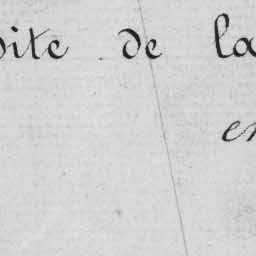 ite de la
e